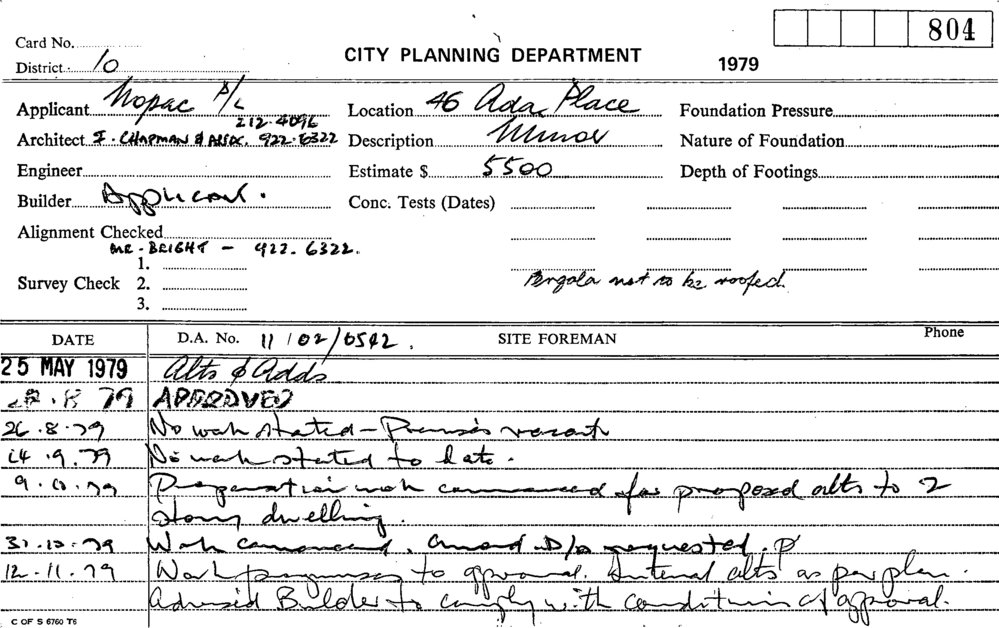 804
Card No.
CITY PLANNING DEPARTMENT
1979
District 10
Applicant Nopac P/L
212-4096
Location 46 Ada Place
Foundation Pressure
Architect F. CHAPMAN & ASSOC. 922-6322
Description Minor
Nature of Foundation
Engineer
Estimate $ 5500
Depth of Footings
Builder Applicant.
Conc. Tests (Dates)
Alignment Checked
MR. BRIGHT - 922.6322.
Survey Check 1.
2.
3.
Pergola not to be roofed.
DATE D.A. No. 11/02/0542. SITE FOREMAN Phone
25 MAY 1979 Alts & Adds
.8.79 APPROVED
26.8.79 No work started - Premises vacant
14.9.79 No work started to date.
9.10.79 Preparation work commenced for proposed alts to 2
storey dwelling.
31.10.79 Work commenced. Amend D/A requested. P
12.11.79 Work progresses to approval. Internal alts as per plan.
Advised Builder to comply with conditions of approval.
C OF S 6760 T6